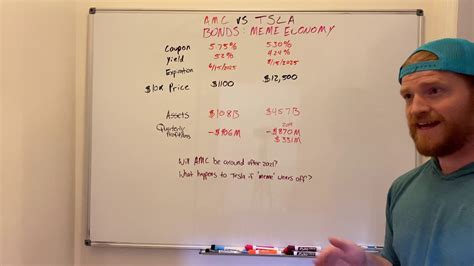 AMC vs TSLA
BONDS: MEME ECONOMY
Coupon 5.75% 5.30%
Yield 52% 4.24%
Expiration 6/15/2025 8/15/2025
$10K Price $1100 $12,500
Assets $10.8B $45.7B
2019
Quarterly -$906M -$870M
Profit/loss $331M
Will AMC be around after 2021?
What happens to Tesla if 'meme' wears off?